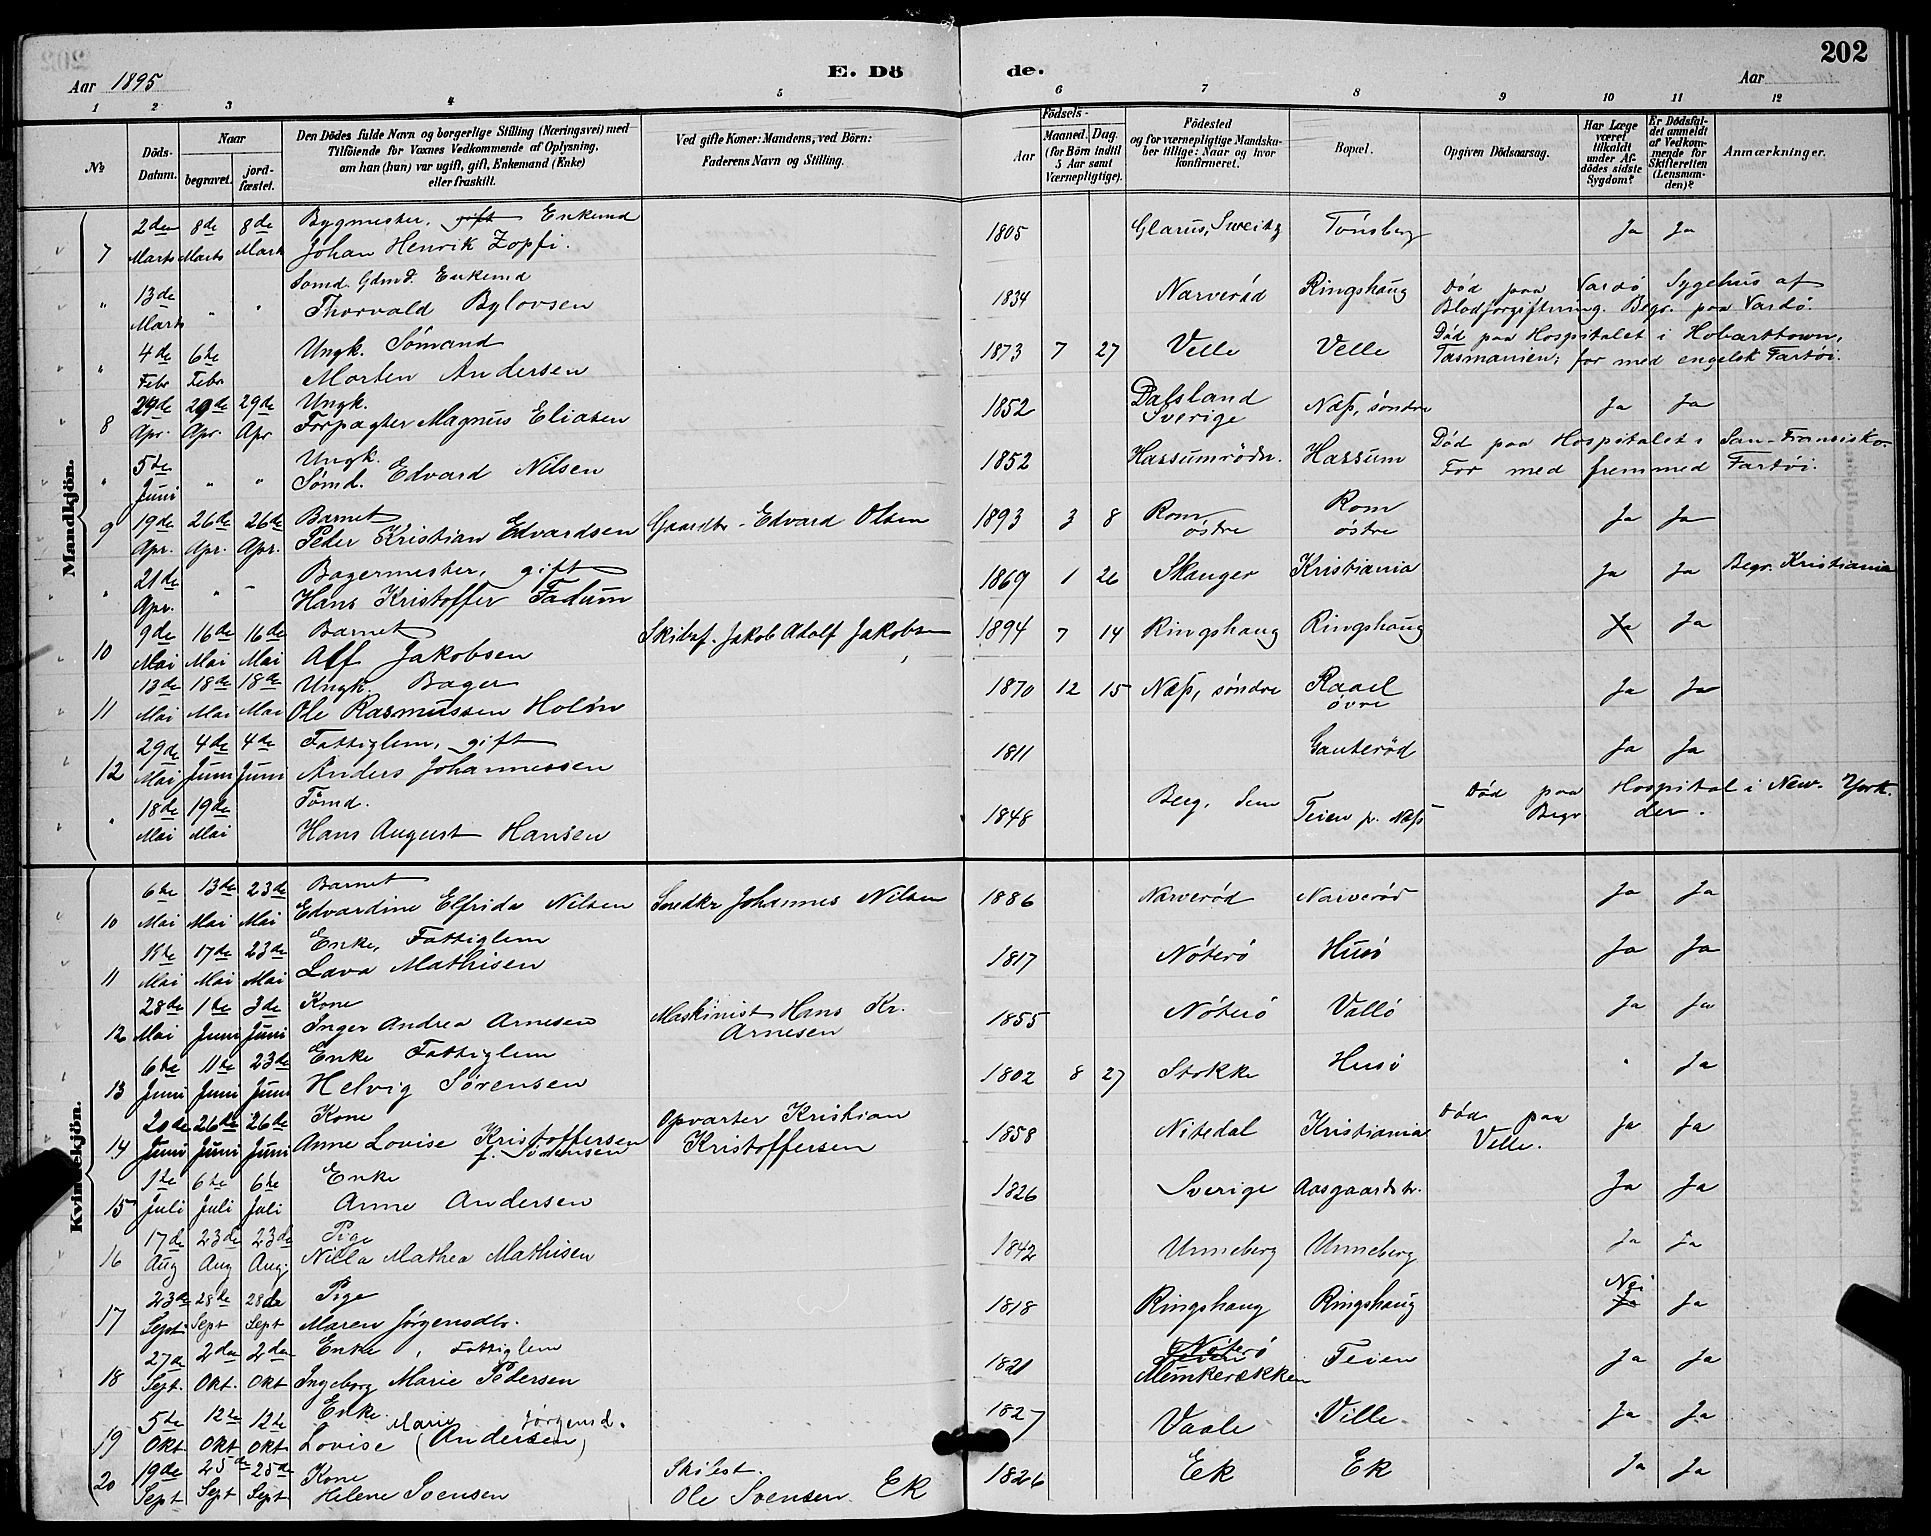 202
Aar 1895
E. Dö de.
Aar
1 2 3 4 5 6 7 8 9 10 11 12
№
Döds-Datum.
Naar
begravet.
jord-fæstet.
Den Dödes fulde Navn og borgerlige Stilling (Næringsvei) med
Tilföiende for Voxnes Vedkommende af Oplysning,
om han (hun) var ugift, gift, Enkemand (Enke)
eller fraskilt.
Ved gifte Koner: Mandens, ved Börn:
Faderens Navn og Stilling.
Födsels-
Aar
Maaned. Dag.
(for Börn indtil
5 Aar samt
Værnepligtige).
Födested
og for værnepligtige Mandska-
ber tillige: Naar og hvor
konfirmeret.
Bopæl.
Opgiven Dödsaarsag.
Har Læge
været
tilkaldt
under Af-
dödes sidste
Sygdom?
Er Dödsfal-
det anmeldt
af Vedkom-
mende for
Skifteretten
(Lensman-
den)?
Anmærkninger.
Mandkjön.
2den 8de 8de Bygmester, gift Enkemd
7 Marts Marts Marts Johan Henrik Zopfi. 1805 Glarus, Sweitz Tönsberg Ja Ja
Sømd. Gdmd. Enkemd
" 13de Marts " " Thorvald Bylovsen 1834 Narverød Ringshaug Død paa Vardö Sygehus af
Blodforgiftning. Begr. paa Vardö.
" 4de Febr 6te Febr Ungk. Sømand
Morten Andersen 1873 7 27 Velle Velle Død paa Hospitalet i Hobarttown,
Tasmanien; for med engelsk Fartøi.
8 29de Apr. 29de Apr. 29de Apr Ungk.
Forpagter Magnus Eliasen 1852 Dalsland Sverige Næss, søndre Ja Ja
" 5te Juni " " Ungk.
Sømd. Edvard Nilsen 1852 Hassumrödn. Hassum Død paa Hospitalet i San-Fransisko.
For med fremmed Fartøi.
9 19de Apr. 26de Apr. 26de Apr. Barnet
Peder Kristian Edvardsen Gaardbr. Edvard Olsen 1893 3 8 Rom östre Rom östre Ja Ja
" 21de Apr. " - Bagermester, gift
Hans Kristoffer Fadum 1869 1 26 Skanger Kristiania Ja Ja Begr. Kristiania
10 9de Mai 16de Mai 16de Mai Barnet
Alf Jakobsen Skibsf. Jakob Adolf Jakobsen 1894 7 14 Ringshaug Ringshaug Ja Ja
11 13de Mai 18de Mai 18de Mai Ungk. Bager
Ole Rasmussen Holm 1870 12 15 Næss, søndre Raael övre Ja Ja
12 29de Mai 4de Juni 4de Juni Fattiglem, gift
Anders Johannessen 1811 Gauterød Ja Ja
" 18de Mai 19de Mai Tømd.
Hans August Hansen 1848 Berg, Sem Teien p. Næss Død paa Hospital i New-York.
Begr der.
Kvindekjön.
10 6te Mai 13de Mai 23de Mai Barnet
Edvardine Elfrida Nilsen Snedkr Johannes Nilsen 1886 Narverød Narverød Ja Ja
11 Mai 17de Mai 23de Mai Enke, Fattiglem
Lava Mathisen 1817 Nöterö Husö Ja Ja
12 28de Mai 1te Juni 3de Juni Kone
Inger Andrea Arnesen Maskinist Hans Kr. Arnesen 1855 Nöterö Vallö Ja Ja
13 6te Juni 11te Juni 23de Juni Enke Fattiglem
Helvig Sørensen 1802 8 27 Stokke Husö " Ja
14 20de Juni 26de Juni 26de Juni Kone
Anne Lovise Kristoffersen f. Sörensen Opvarter Kristian Kristoffersen 1858 Nitedal Kristiania Død paa Velle. Ja Ja
15 1te Juli 6te Juli 6te Juli Enke
Anne Andersen 1826 Sverige Aasgaardstr. Ja Ja
16 17de Aug 23de Aug 23de Aug. Pige
Nilla Mathea Mathisen 1842 Unneberg Unneberg Ja Ja
17 23de Sept. 28de Sept 28de Sept Pige
Maren Jørgensdtr. 1818 Ringshaug Ringshaug Nei Ja Ja
18 27de Sept. 2den Okt. 2den Okt Enke, Fattiglem
Ingeborg Marie Pedersen 1821 Nöterö Teien Munkerækken Teien Ja Ja
19 5te Okt. 12te Okt 12te Okt. Enke
Lovise Marie Jørgensd. (Andersen) 1827 Vaale Ville Ja Ja
20 19de Sept 25de Sept 25de Sept Kone
Helene Svensen Skibst. Ole Svensen Ek 1826 Ek Ek Ja Ja